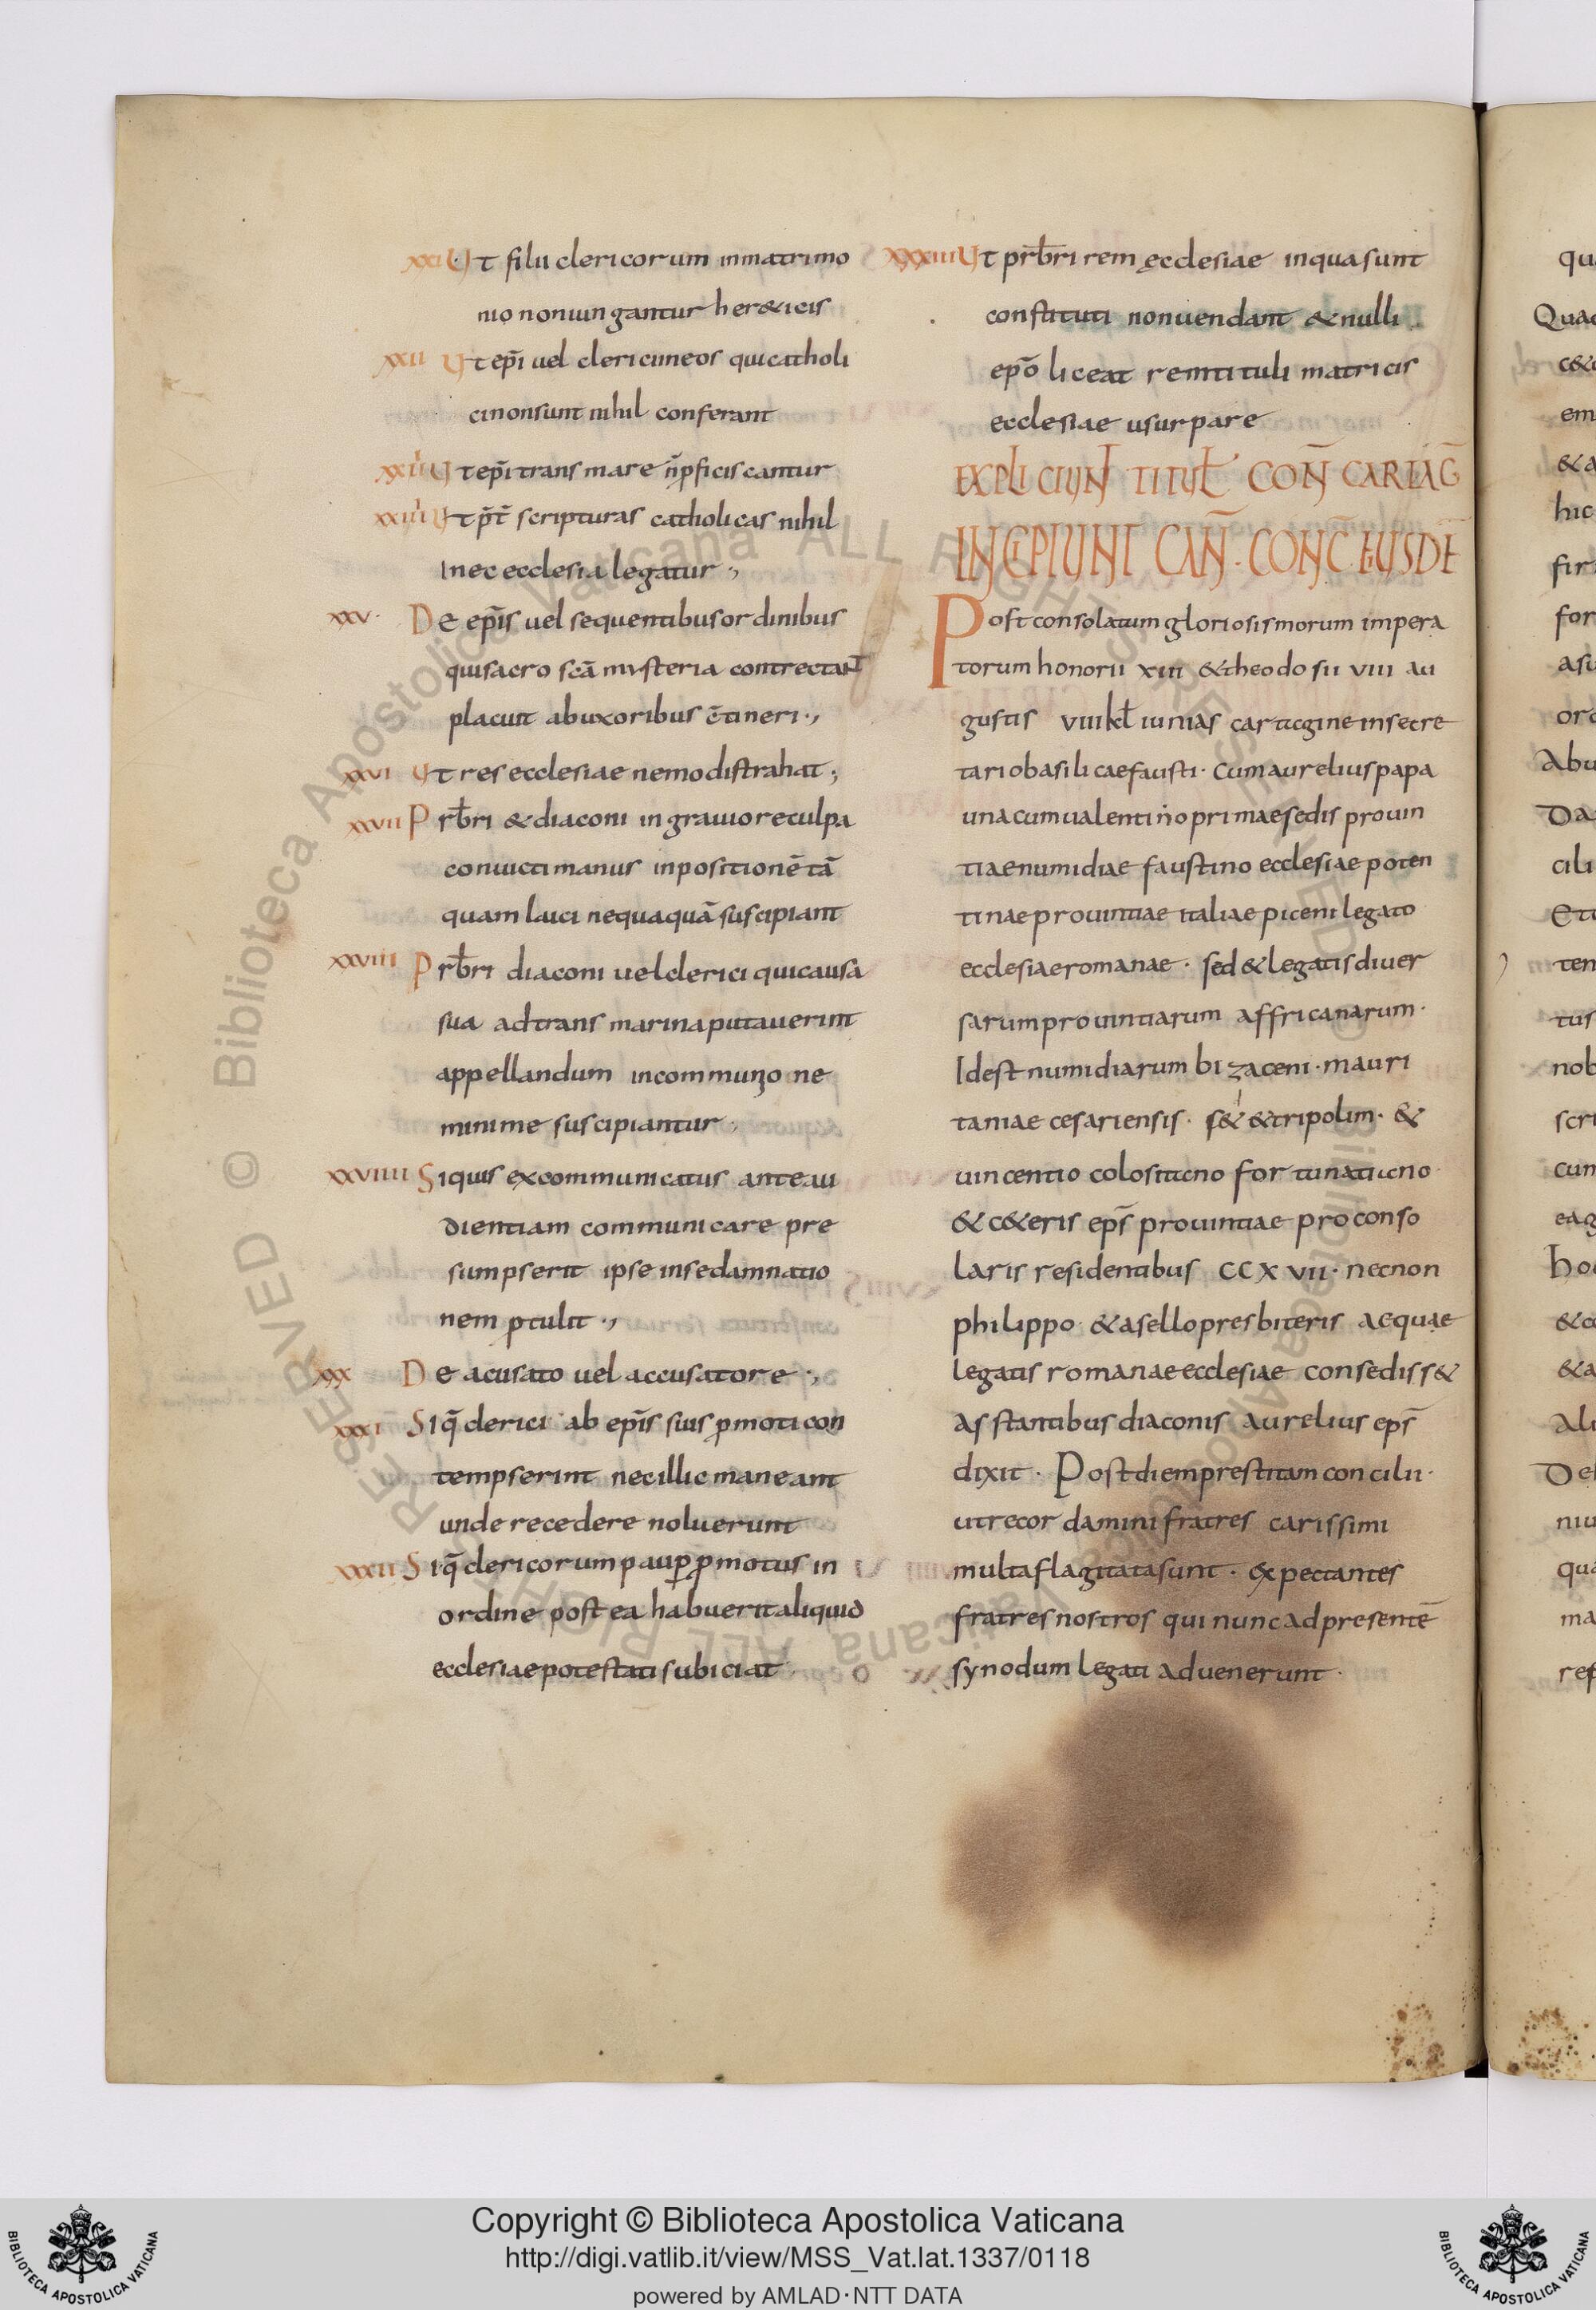 xxi Ut filii clericorum inmatrimo
nio noniungantur her&icis
xxii Ut ep̄i uel clerici in eos qui catholi
ci non sunt nihil conferant
xxiii Ut ep̄i trans mare n̄ pficiscantur
xxiiii Ut p̄t̄ scripturas catholicas nihil
In ec ecclesia legatur ·,
xxv· De ep̄is uel sequentibus ordinibus
qui sacro scā mysteria contrectant
placuit ab uxoribus c̄tineri ·,
xxvi Ut res ecclesiae nemo distrahat ;
xxvii Prb̄ri & diaconi in grauiore culpa
conuicti manus inpositionē tā
quam laici nequaquā suscipiant
xxviii Prb̄ri diaconi uel clerici qui causa
sua ad transmarina putauerint
appellandum in communio ne
minime suscipiantur
xxviiii Siquis excommunicatus ante au
dientiam communicare pre
sumpserit ipse in se damnatio
nem ꝓtulit ·,
xxx De acusato uel accusatore ·,
xxxi Siq̄ clerici ab ep̄is suis ꝓmoti con
tempserint nec illic maneant
unde recedere noluerunt
xxxii Siq̄ clericorum paup̱ ꝓmotus in
ordine postea habuerit aliquid
ecclesiae potestati subiciat
xxxiiii Ut prb̄ri rem ęcclesiae in qua sunt
constituti non uendant & nulli
ep̄o liceat rem tituli matricis
ecclesiae usurpare
EXPLICIUNT TITUL̄ CON̄ CARTAG̅
INCIPIUNT CAN̄ · CONC̄ EIUSDĒ
Post consolatum gloriosismorum impera
torum honorii xiii & theodosii viii au
gustis viii kl̄ iunias cartagine in secre
tario basilicae fausti · Cum aurelius papa
una cum ualentino primae sedis prouin
tiae numidiae faustino ecclesiae poten
tinae prouintiae italiae piceni legato
ecclesiae romanae · sed & legatis diuer
sarum prouintiarum affricanarum ·
Idest numidiarum bizaceni · mauri
taniae cesariensis · s& & tripolim · &
uincentio colositacno fortunatiacno
& c&eris ep̄s prouintiae proconso
laris residentibus CCXVII · necnon
philippo & asello presbiteris aequae
legatis romanae ecclesiae consediss&
asstantibus diaconis Aurelius ep̄s
dixit · Post diem prestitam concilii ·
ut recordamini fratres carissimi
multa flagitata sunt · expectantes
fratres nostros qui nunc ad presentē
synodum legati aduenerunt ·
Copyright © Biblioteca Apostolica Vaticana
http://digi.vatlib.it/view/MSS_Vat.lat.1337/0118
powered by AMLAD·NTT DATA